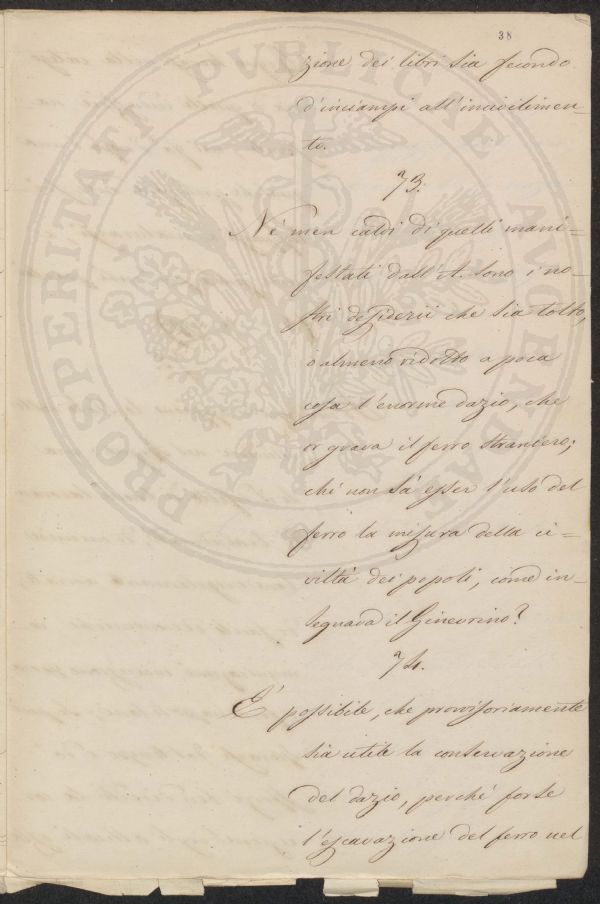 38
zione dei libri sia fecondo
d'inciampi all'incivilimen-
to.
73.
Nè men caldi di quelli mani=
festati dall'A. sono i no-
stri desiderii che sia tolto,
o almeno ridotto a poca
cosa l'enorme dazio, che
or grava il ferro straniero;
chè non sà esser l'uso del
ferro la misura della ci=
viltà dei popoli, come in-
segnava il Ginevrino?
74.
E' possibile, che provvisoriamente
sia utile la conservazione
del dazio, perché forse
l'escavazione del ferro nel
PROSPERITATI PUBLICAE AUGENDAE